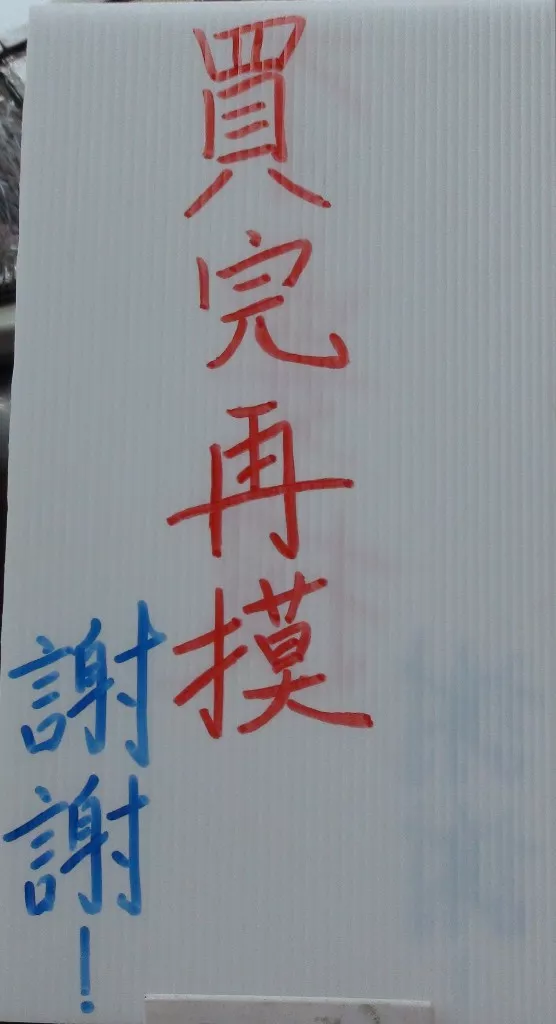 買完再摸
謝謝!